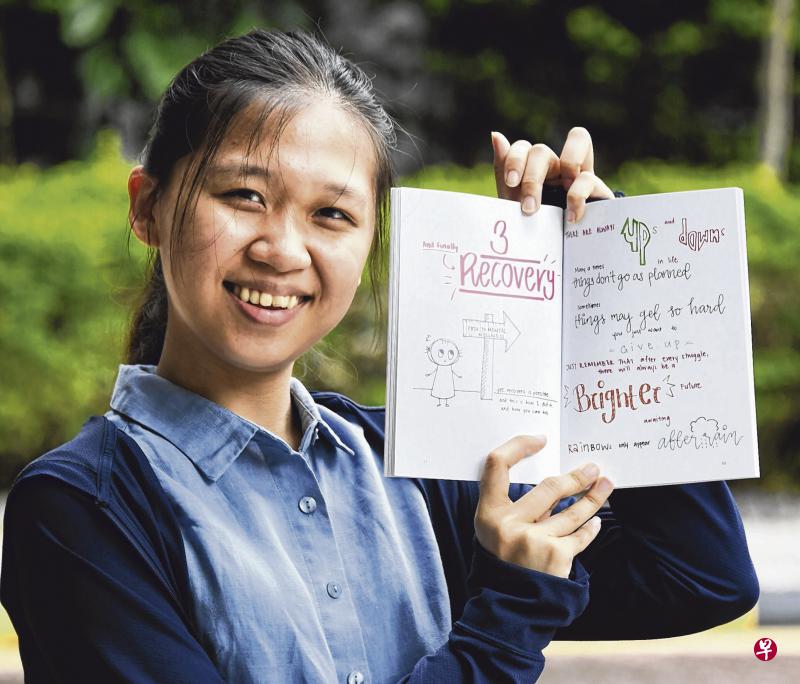 3
And finally
Recovery
PATH TO MENTAL
WELLNESS
yes, recovery is possible
and this is how I did it
and how you can too
THERE ARE ALWAYS UPs and downs
in life
Many a times
things don't go as planned
Sometimes
things may get so hard
you just want to
- Give up -
JUST REMEMBER THAT after every struggle,
there will always be a
Brighter Future
awaiting
RAINBOWs only appear after rain
早